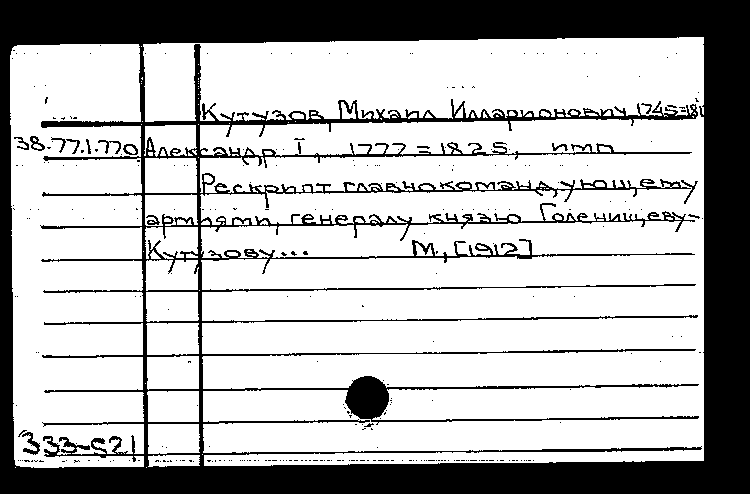 Кутузов, Михаил Илларионович, 1745=181
38.77.1.770 Александр I, 1777=1825, имп
Рескрипт главнокомандующему
армиями, генералу князю Голенищеву-
Кутузову... М., [1912]
333-521